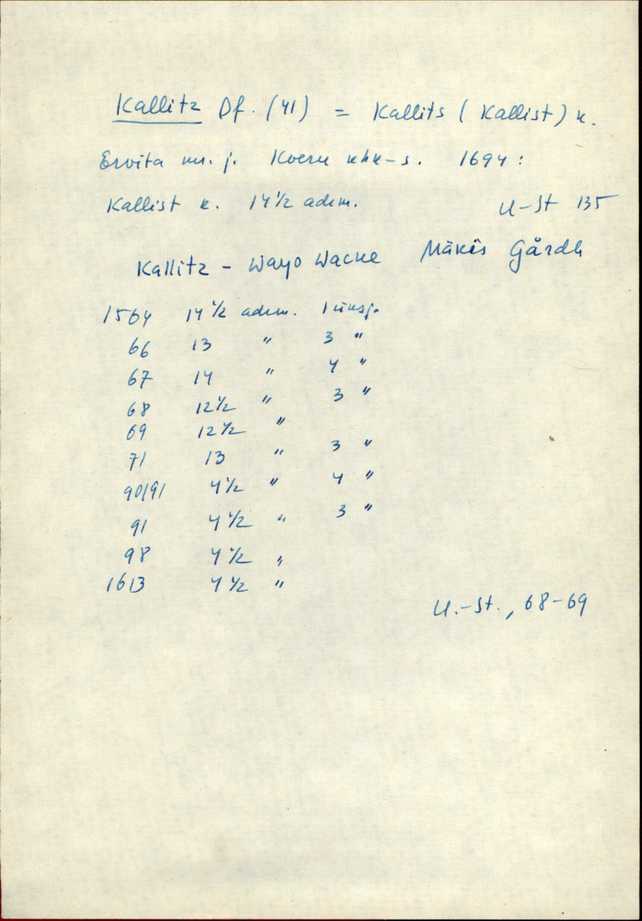 Kallitz Df. (41) = Kallits (Kallist) k.
Ervita mr. j. Koeru khk-s. 1694:
Kallist k. 14 1/2 adrm. U-St 135
Kallitz - Wayo Wacke Mäkis Gårdh
1564 14 1/2 adrm. 1 üksj.
66 13 " 3 "
67 14 " 4 "
68 12 1/2 " 3 "
69 12 1/2 "
71 13 " 3 "
90/91 4 1/2 " 4 "
91 4 1/2 " 3 "
98 4 1/2 "
1613 4 1/2 "
U.-St., 68-69